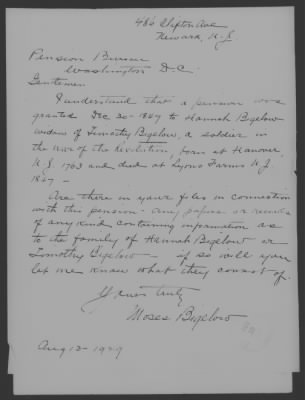 486 Clifton Ave
Newark, N.J.
Pension Bureau
Washington D.C.
Gentlemen
I understand that a pension was
granted Dec 20-1847 to Hannah Bigelow
widow of Timothy Bigelow, a soldier in
the War of the Revolution, born at Hanover,
N.J. 1763 and died at Lyons Farms N.J.
18 7 -
Are there in your files in connection
with this pension - any papers or records
of any kind containing information as
to the family of Hannah Bigelow or
Timothy Bigelow - if so will you
let me know what they consist of.
Yours truly
Moses Bigelow
Aug 12-1929